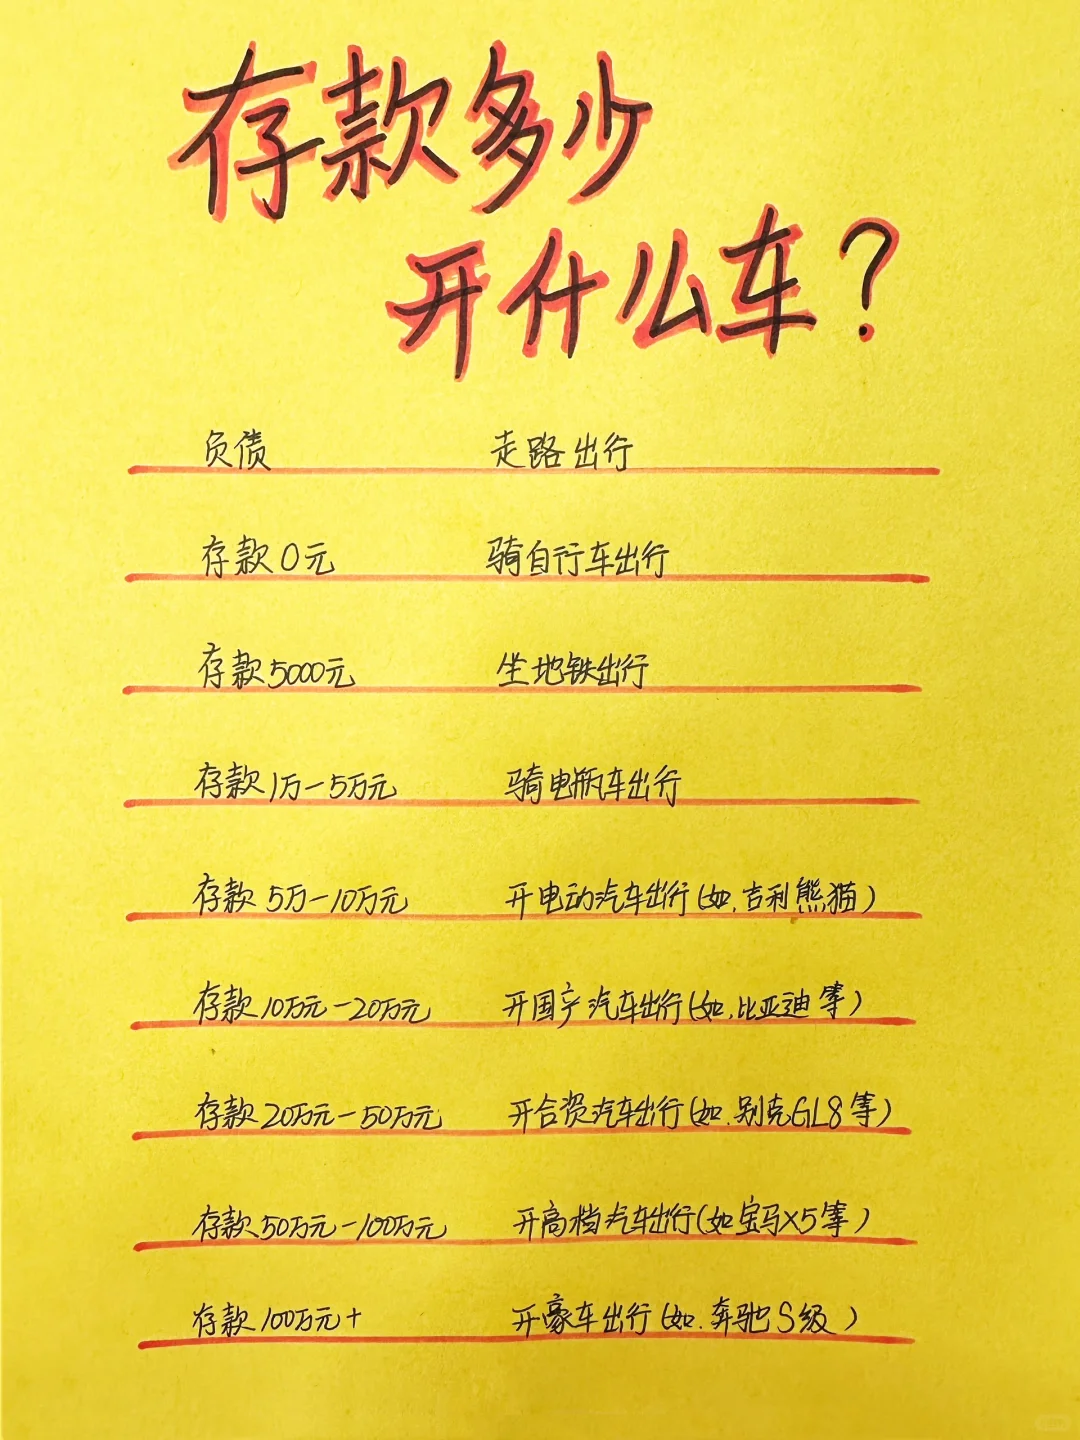 存款多少
开什么车？
负债 走路出行
存款0元 骑自行车出行
存款5000元 坐地铁出行
存款1万-5万元 骑电瓶车出行
存款5万-10万元 开电动汽车出行(如.吉利熊猫)
存款10万元-20万元 开国产汽车出行(如.比亚迪等)
存款20万元-50万元 开合资汽车出行(如.别克GL8等)
存款50万元-100万元 开高档汽车出行(如宝马X5等)
存款100万元+ 开豪车出行(如.奔驰S级)